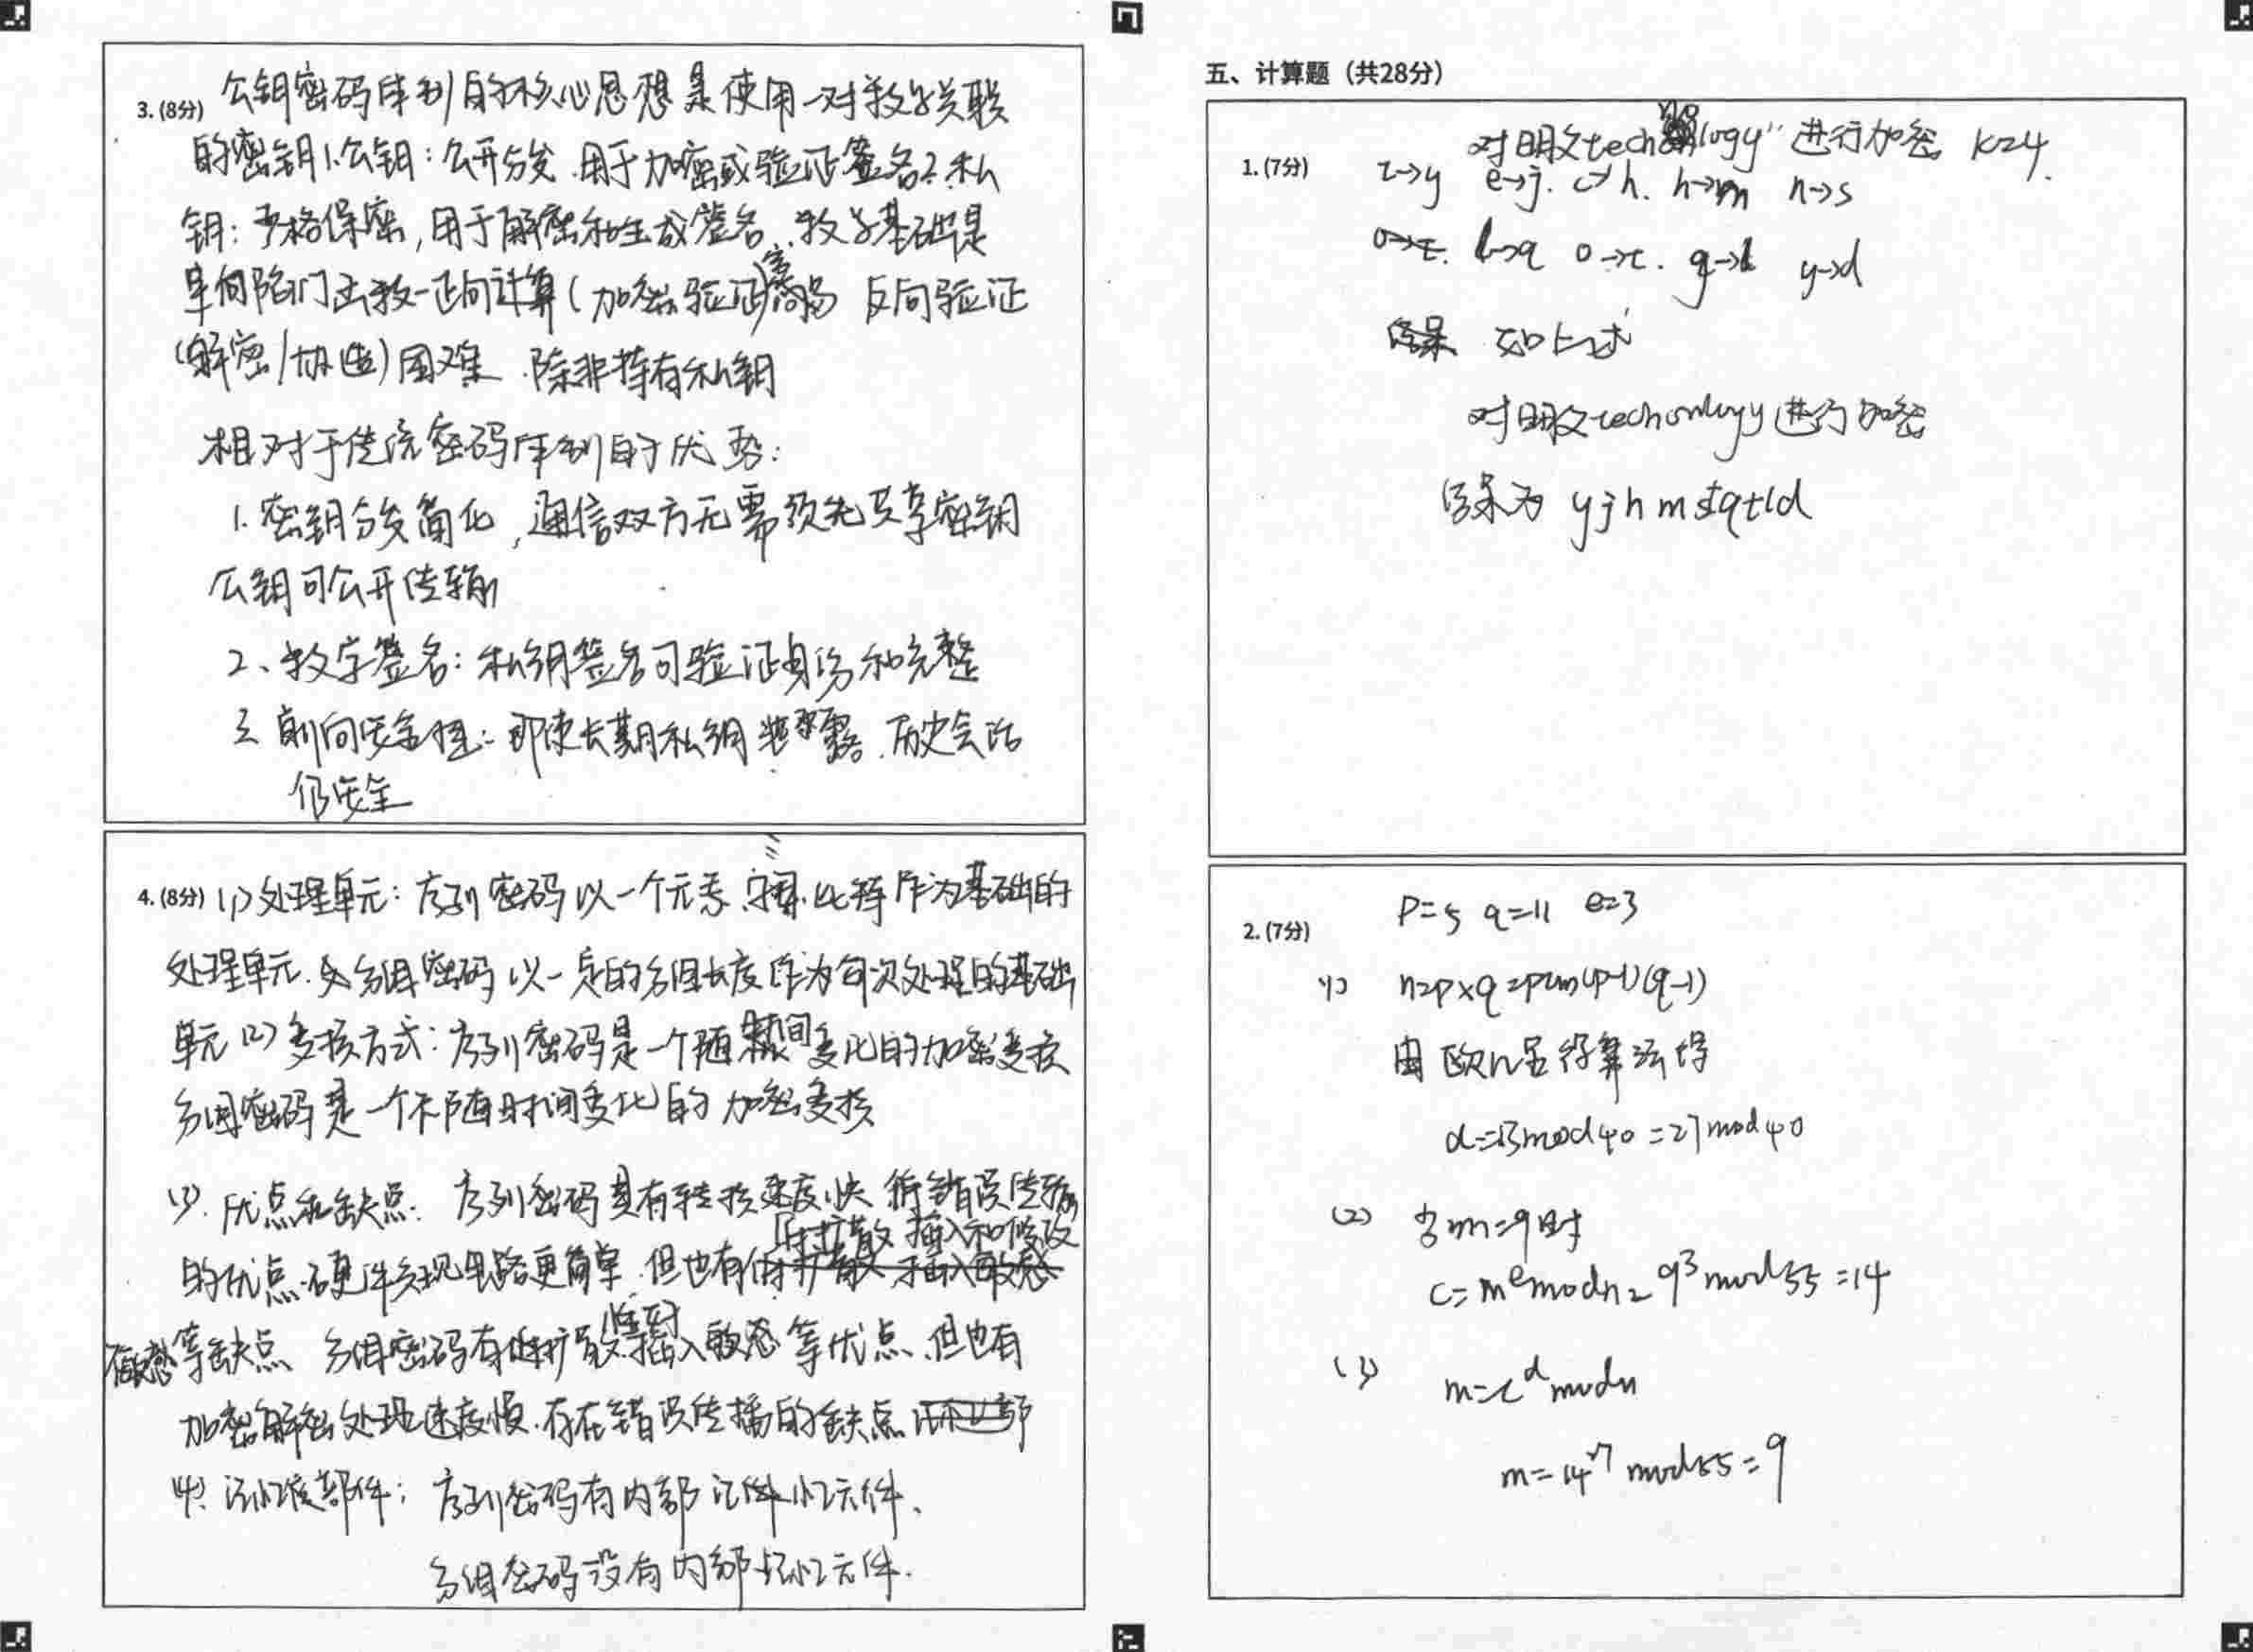 3. (8分) 公钥密码体制的核心思想是使用一对数学关联
的密钥1.公钥：公开分发.用于加密或验证签名2.私
钥：严格保密,用于解密和生成签名.数学基础是
单向陷门函数-正向计算(加密验证)容易 反向验证
(解密/伪造)困难.除非持有私钥
相对于传统密码体制的优势：
1.密钥分发简化,通信双方无需预先共享密钥
公钥可公开传输
2、数字签名：私钥签名可验证身份和完整
3 前向安全性：即使长期私钥 泄露.历史会话
仍安全
4. (8分) (1)处理单元：序列密码以一个元素 比特作为基础的
处理单元.分组密码以一定的分组长度作为每次处理的基础
单元(2)变换方式：序列密码是一个随时间变化的加密变换
分组密码是一个不随时间变化的加密变换
(3).优点和缺点：序列密码具有转换速度快 错误传播
低扩散 插入和修改
的优点.硬件实现电路更简单.但也有
不敏感等缺点 分组密码有 扩散 插入敏感等优点.但也有
加密解密处理速度慢.存在错误传播的缺点
(4).记忆部件：序列密码有内部记忆元件、
分组密码没有内部记忆元件.
五、计算题（共28分）
1. (7分) 对明文technology"进行加密 k=4.
t→y e→j. c→h. h→m n→s
o→t. l→q o→t. g→l y→d
结果 如上述
对明文techonlogy进行加密
结果为 yjhmstqtld
2. (7分) P=5 q=11 e=3
(1) n=p×q (p-1)(q-1)
由欧几里得算法得
d=-13mod40=27mod40
(2) 当m=9时
c=m^e modn=9³mod55=14
(3) m=c^d modn
m=14^27 mod55=9